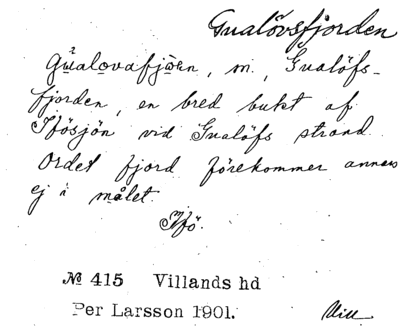 Gualövsfjorden
gu̯alovafjɷʀn, m., Gualöfs-
fjorden, en bred bukt af
Ifösjön vid Gualöfs strand.
Ordet fjord förekommer annars
ej i målet.
Ifö.
№ 415 Villands hd
Per Larsson 1901.
Vill